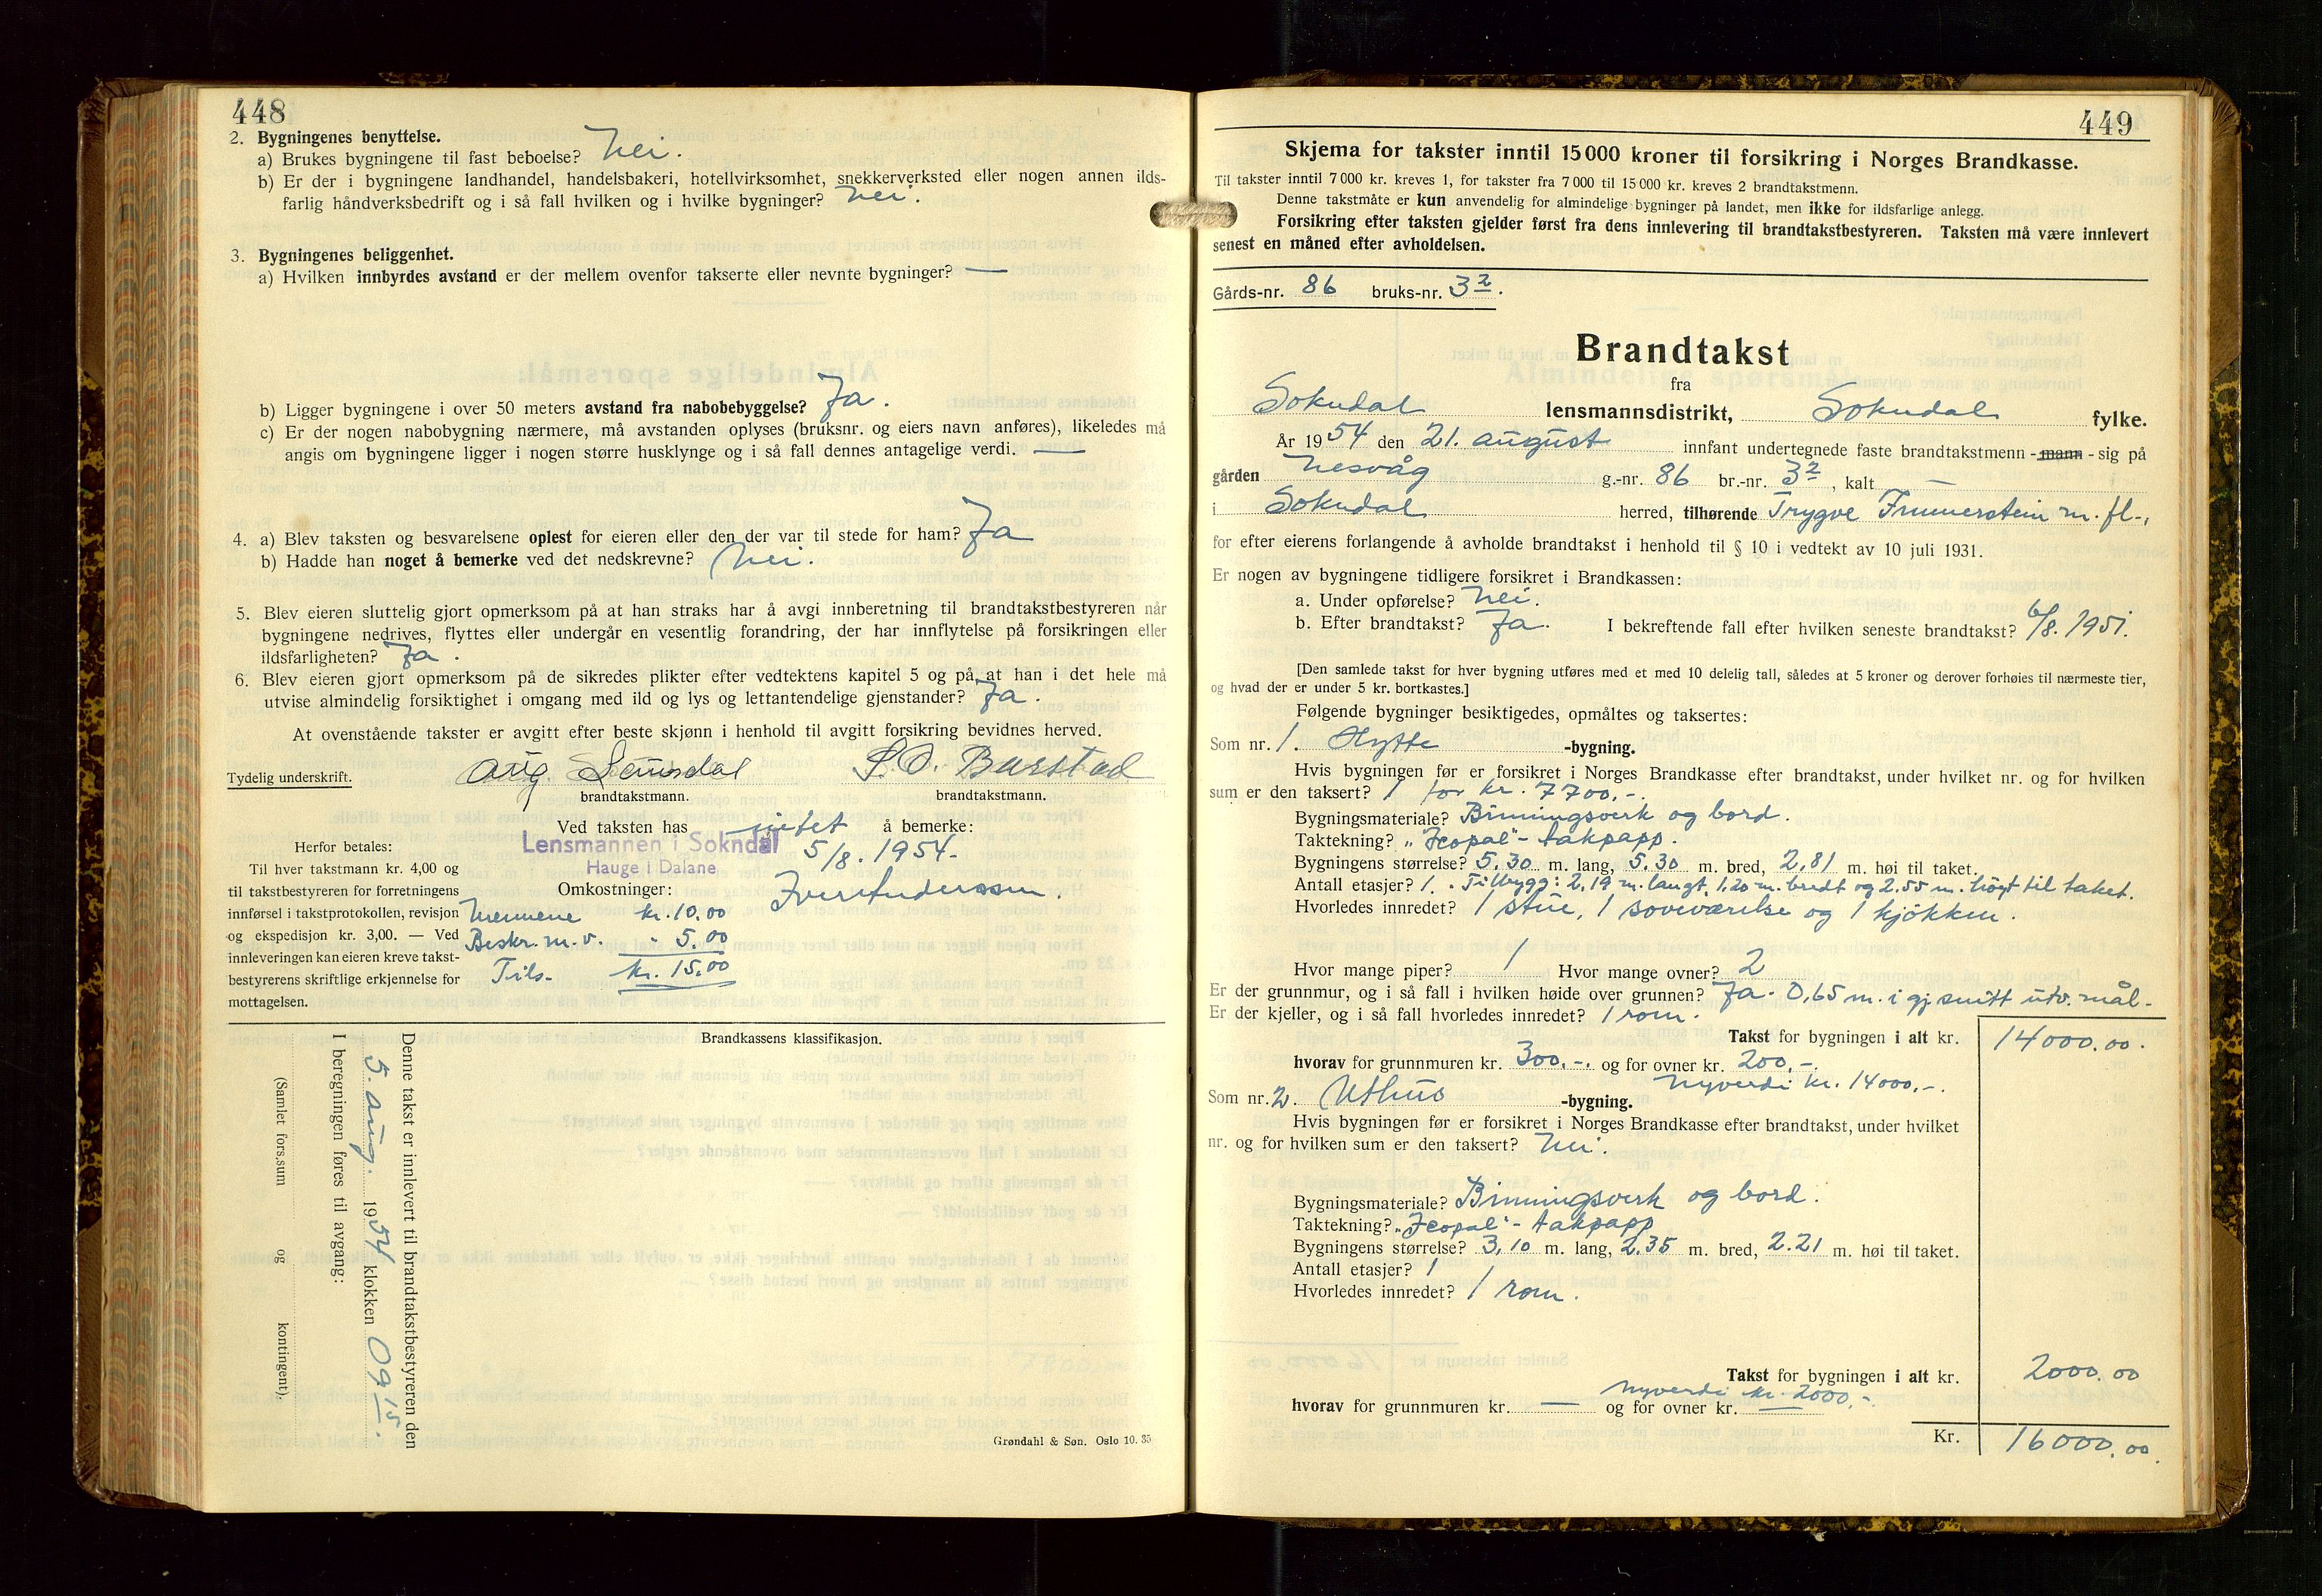 448
2. Bygningenes benyttelse.
a) Brukes bygningene til fast beboelse? Nei.
b) Er der i bygningene landhandel, handelsbakeri, hotellvirksomhet, snekkerverksted eller nogen annen ilds-
farlig håndverksbedrift og i så fall hvilken og i hvilke bygninger? Nei.
3. Bygningenes beliggenhet.
a) Hvilken innbyrdes avstand er der mellem ovenfor takserte eller nevnte bygninger? —
b) Ligger bygningene i over 50 meters avstand fra nabobebyggelse? Ja.
c) Er der nogen nabobygning nærmere, må avstanden oplyses (bruksnr. og eiers navn anføres), likeledes må
angis om bygningene ligger i nogen større husklynge og i så fall dennes antagelige verdi. —
4. a) Blev taksten og besvarelsene oplest for eieren eller den der var til stede for ham? Ja
b) Hadde han noget å bemerke ved det nedskrevne? Nei.
5. Blev eieren sluttelig gjort opmerksom på at han straks har å avgi innberetning til brandtakstbestyreren når
bygningene nedrives, flyttes eller undergår en vesentlig forandring, der har innflytelse på forsikringen eller
ildsfarligheten? Ja.
6. Blev eieren gjort opmerksom på de sikredes plikter efter vedtektens kapitel 5 og på, at han i det hele må
utvise almindelig forsiktighet i omgang med ild og lys og lettantendelige gjenstander? Ja.
At ovenstående takster er avgitt efter beste skjønn i henhold til avgitt forsikring bevidnes herved.
Tydelig underskrift. Aug. S. O. Barstad
brandtakstmann. brandtakstmann.
Ved taksten has intet å bemerke:
Lensmannen i Sokndal 5/8. 1954.
Hauge i Dalane
Herfor betales:
Til hver takstmann kr. 4,00 og
til takstbestyreren for forretningens
innførsel i takstprotokollen, revisjon
og ekspedisjon kr. 3,00. — Ved
innleveringen kan eieren kreve takst-
bestyrerens skriftlige erkjennelse for
mottagelsen.
Omkostninger: Iver Anderssen.
Mennene kr. 10.00
Beskr. m.v. " 5.00
Tils. kr. 15.00
Brandkassens klassifikasjon.
Denne takst er innlevert til brandtakstbestyreren den
5. aug. 1954 klokken 09 15.
I beregningen føres til avgang:
(Samlet fors.sum og kontingent).
Grøndahl & Søn. Oslo 10. 35
449
Skjema for takster inntil 15 000 kroner til forsikring i Norges Brandkasse.
Til takster inntil 7 000 kr. kreves 1, for takster fra 7 000 til 15 000 kr. kreves 2 brandtakstmenn.
Denne takstmåte er kun anvendelig for almindelige bygninger på landet, men ikke for ildsfarlige anlegg.
Forsikring efter taksten gjelder først fra dens innlevering til brandtakstbestyreren. Taksten må være innlevert
senest en måned efter avholdelsen.
Gårds-nr. 86 bruks-nr. 32.
Brandtakst
fra
Sokndal lensmannsdistrikt, Sokndal fylke.
År 1954 den 21. august innfant undertegnede faste brandtakstmenn - mann - sig på
gården Nesvåg g.-nr. 86 br.-nr. 32, kalt —
i Sokndal herred, tilhørende Trygve m. fl.,
for efter eierens forlangende å avholde brandtakst i henhold til § 10 i vedtekt av 10 juli 1931.
Er nogen av bygningene tidligere forsikret i Brandkassen:
a. Under opførelse? Nei.
b. Efter brandtakst? Ja. I bekreftende fall efter hvilken seneste brandtakst? 6/8. 1951.
[Den samlede takst for hver bygning utføres med et med 10 delelig tall, således at 5 kroner og derover forhøies til nærmeste tier,
og hvad der er under 5 kr. bortkastes.]
Følgende bygninger besiktigedes, opmåltes og taksertes:
Som nr. 1. Hytte -bygning.
Hvis bygningen før er forsikret i Norges Brandkasse efter brandtakst, under hvilket nr. og for hvilken
sum er den taksert? 1 for kr. 7700,-.
Bygningsmateriale? Binningsverk og bord.
Taktekning? "Icopal"- takpapp.
Bygningens størrelse? 5,30 m. lang, 5.30 m. bred, 2,81 m. høi til taket.
Antall etasjer? 1. - Tilbygg: 2,19 m. langt, 1.20 m. bredt og 2.55 m. høgt til taket.
Hvorledes innredet? 1 stue, 1 soveværelse og 1 kjøkken.
Hvor mange piper? 1 Hvor mange ovner? 2
Er der grunnmur, og i så fall i hvilken høide over grunnen? Ja. 0,65 m. i gj.snitt utv. mål.
Er der kjeller, og i så fall hvorledes innredet? 1 rom.
Takst for bygningen i alt kr. 14000.00.
hvorav for grunnmuren kr. 300,-. og for ovner kr. 200,-.
Nyverdi kr. 14000,-.
Som nr. 2. Uthus -bygning.
Hvis bygningen før er forsikret i Norges Brandkasse efter brandtakst, under hvilket
nr. og for hvilken sum er den taksert? Nei.
Bygningsmateriale? Binningsverk og bord.
Taktekning? "Icopal"- takpapp
Bygningens størrelse? 3,10 m. lang, 2.35 m. bred, 2.21 m. høi til taket.
Antall etasjer? 1
Hvorledes innredet? 1 rom.
Takst for bygningen i alt kr. 2000.00
Nyverdi kr. 2000,-.
hvorav for grunnmuren kr. — og for ovner kr. —
Kr. 16000.00.